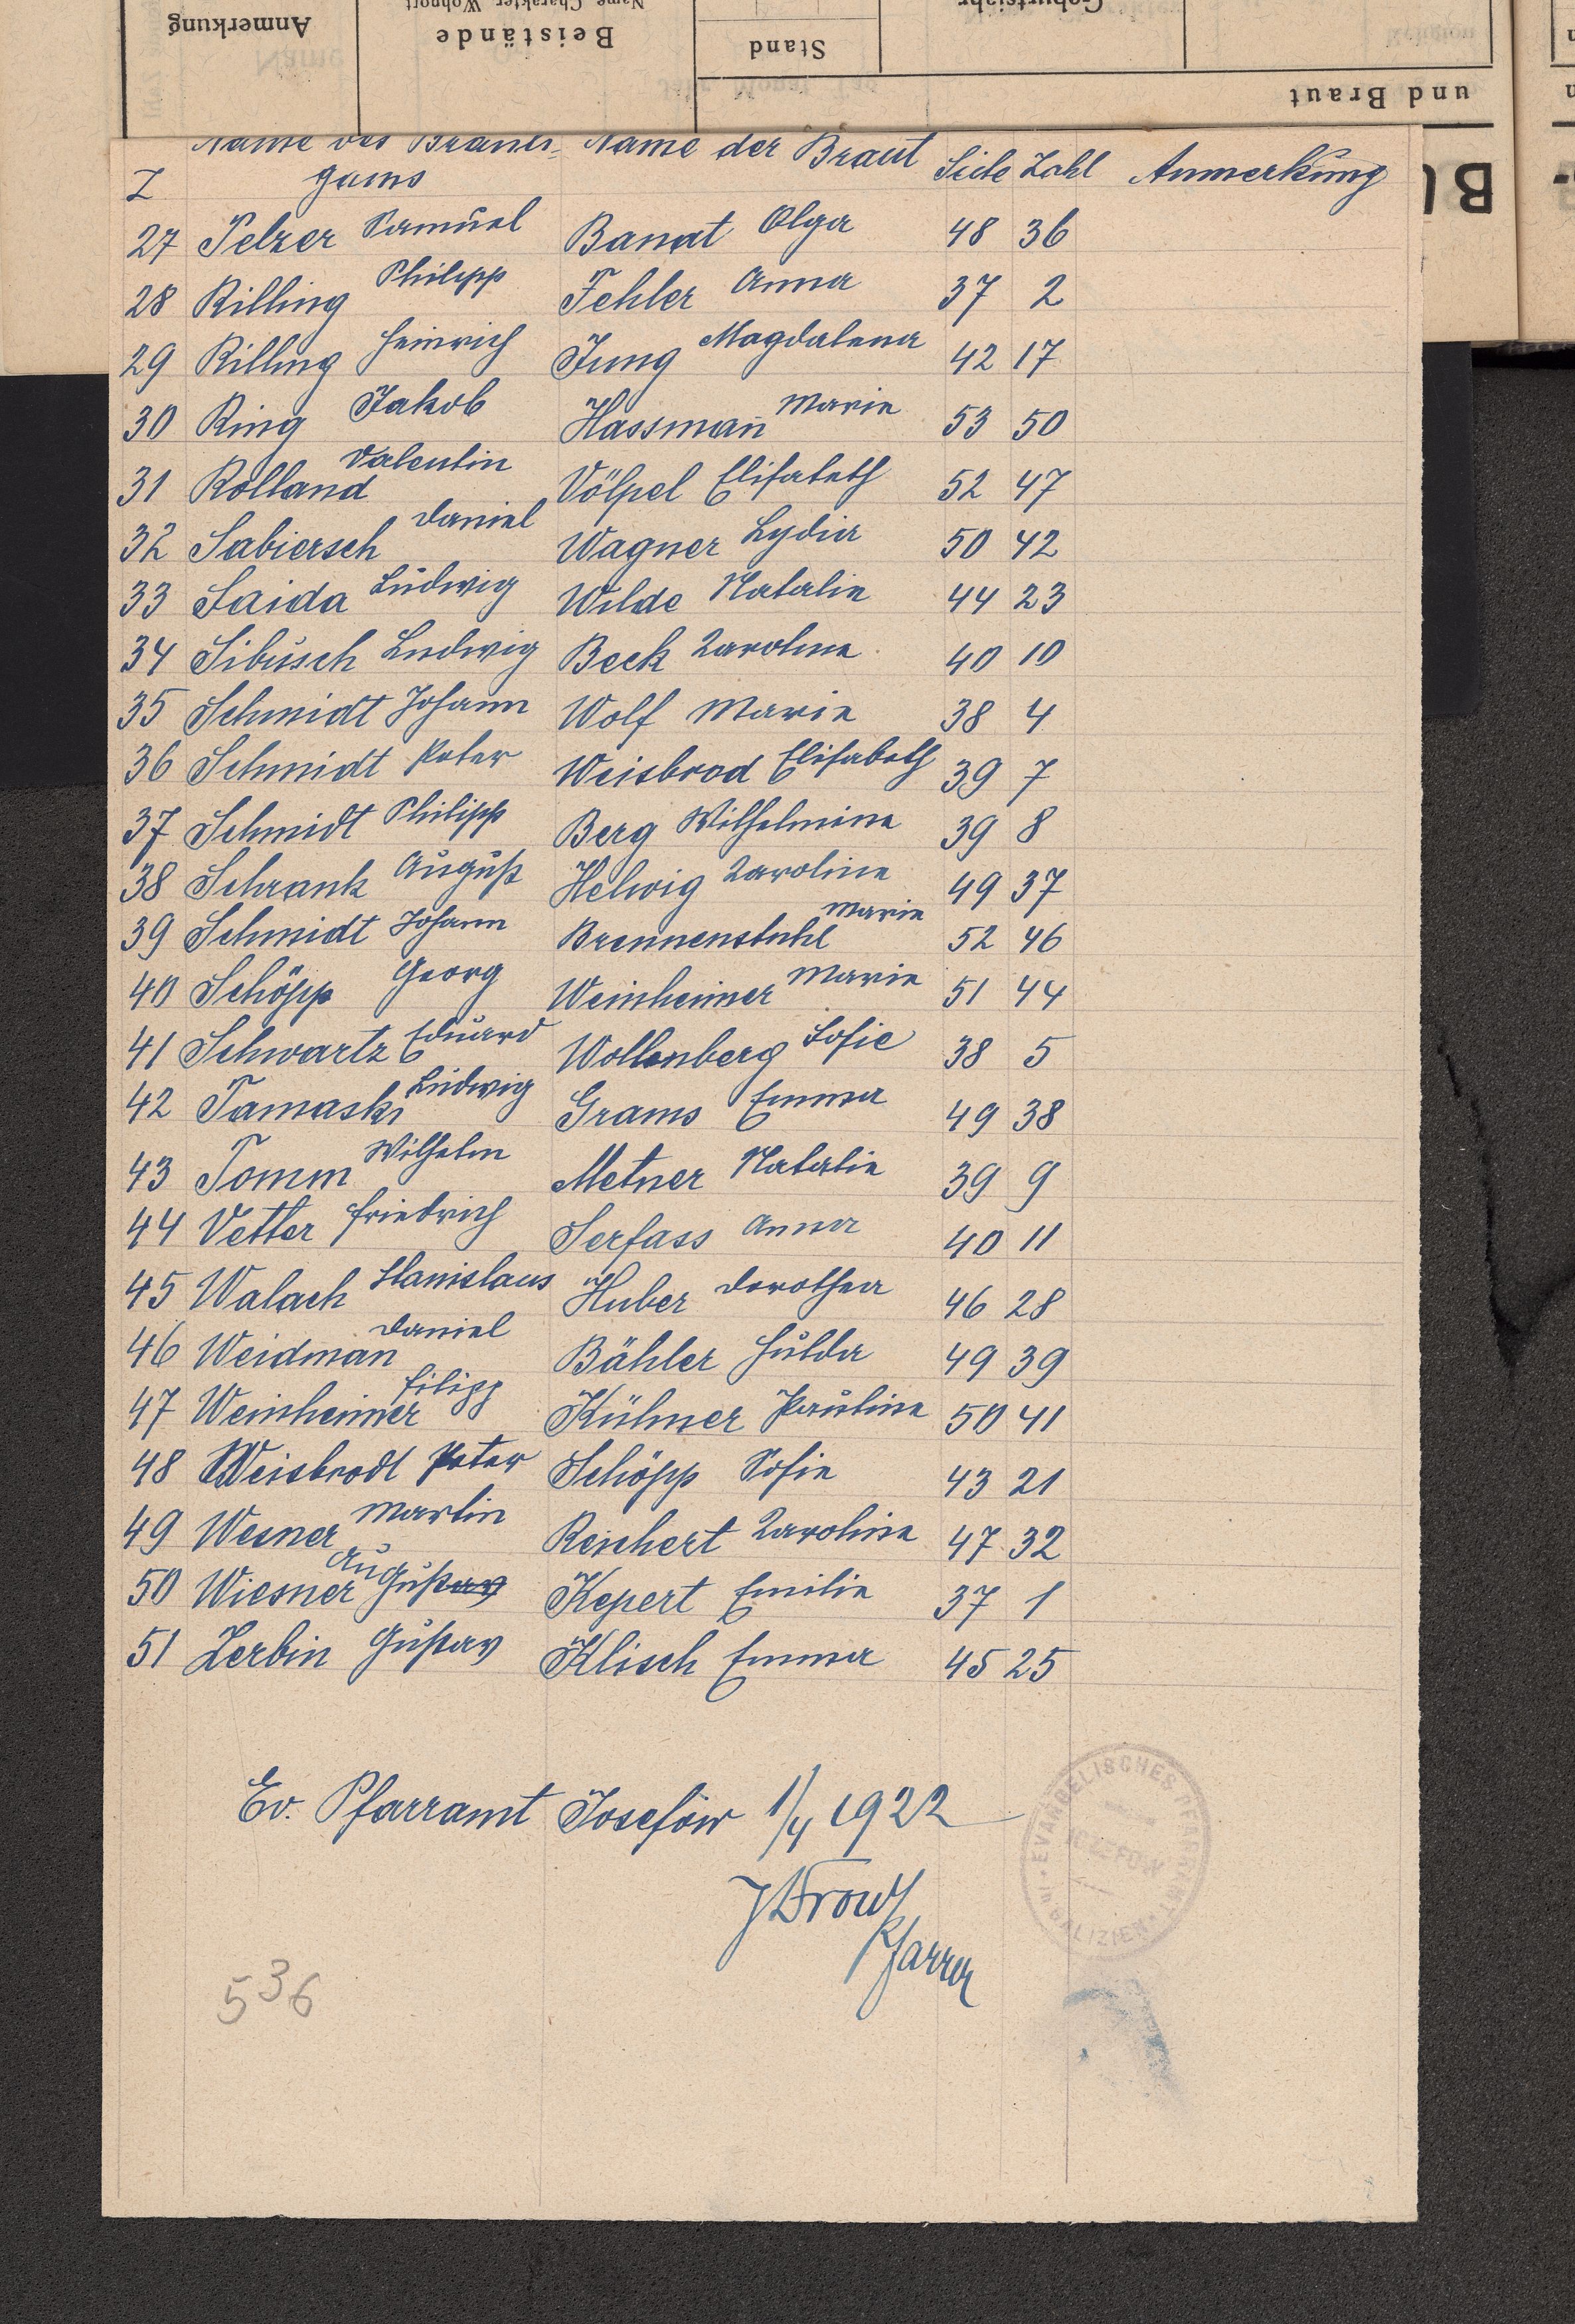 Anmerkung
Beistände
Name, Charakter, Wohnort
Stand
Geburtsjahr
und Braut
Z Name des Bräuti- Name der Braut Seite Zahl Anmerkung
gams
27 Pelzer Samuel Banat Olga 48 36
28 Rilling Philipp Fehler Anna 37 2
29 Rilling Heinrich Jung Magdalena 42 17
30 Ring Jakob Hassman̄ Marie 53 50
31 Rolland Valentin Völpel Elisabeth 52 47
32 Sabiersch Daniel Wagner Lydia 50 42
33 Saida Ludwig Wilde Natalie 44 23
34 Sibusch Ludwig Beck Karoline 40 10
35 Schmidt Johann Wolf Marie 38 4
36 Schmidt Peter Weisbrod Elisabeth 39 7
37 Schmidt Philipp Berg Wilhelmine 39 8
38 Schrank August Helwig Karoline 49 37
39 Schmidt Johann Brennenstuhl Marie 52 46
40 Schöpp Georg Weinheimer Marie 51 44
41 Schwartz Eduard Wollenberg Sofie 38 5
42 Tamaski Ludwig Grams Emma 49 38
43 Tomm Wilhelm Metner Natalie 39 9
44 Vetter Friedrich Serfass Anna 40 11
45 Walach Stanislaus Huber Dorothea 46 28
46 Weidman Daniel Bähler Hulda 49 39
47 Weinheimer Filipp Kühner Pauline 50 41
48 Weisbrodt Peter Schöpp Sofie 43 21
49 Wesner Martin Reichert Karoline 47 32
50 Wiesner August Kepert Emilie 37 1
51 Zerbin Gustav Klisch Emma 45 25
Ev. Pfarramt Josefów 1/4 1922
Pfarrer
EVANGELISCHES PFARRAMT
JOZEFOW
in GALIZIEN
536